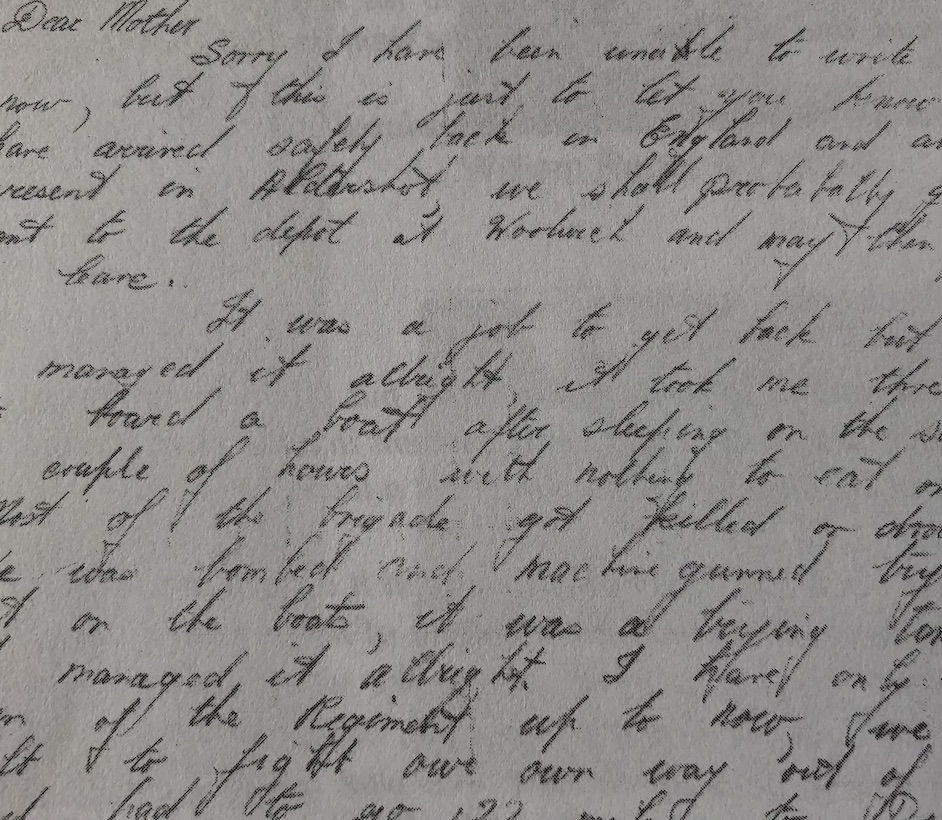 Dear Mother
Sorry I have been unable to write
now, but this is just to let you know
have arrived safely back in England and
resent in Aldershot, we shall probabally
to the depot at Woolwich and may then
leave.
It was a job to get back but
managed it allright, it took me thre
board a boat after sleeping on the
couple of hours with nothing to eat or
Most of the brigade got killed or drow
e was bombed and machine gunned try
on the boats, it was a trying
managed it allright. I have only
of the Regiment up to now, we
to fight owe own way out of
had to go 122 to